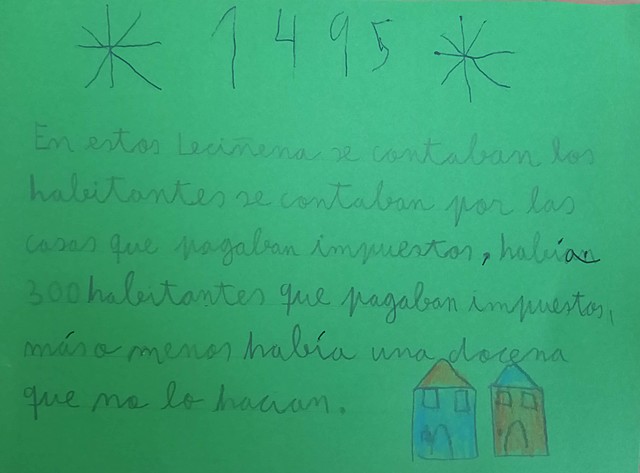 1495
En estos Leciñena se contaban los
habitantes se contaban por las
casas que pagaban impuestos, habían
300 habitantes que pagaban impuestos,
más o menos había una docena
que no lo hacian.